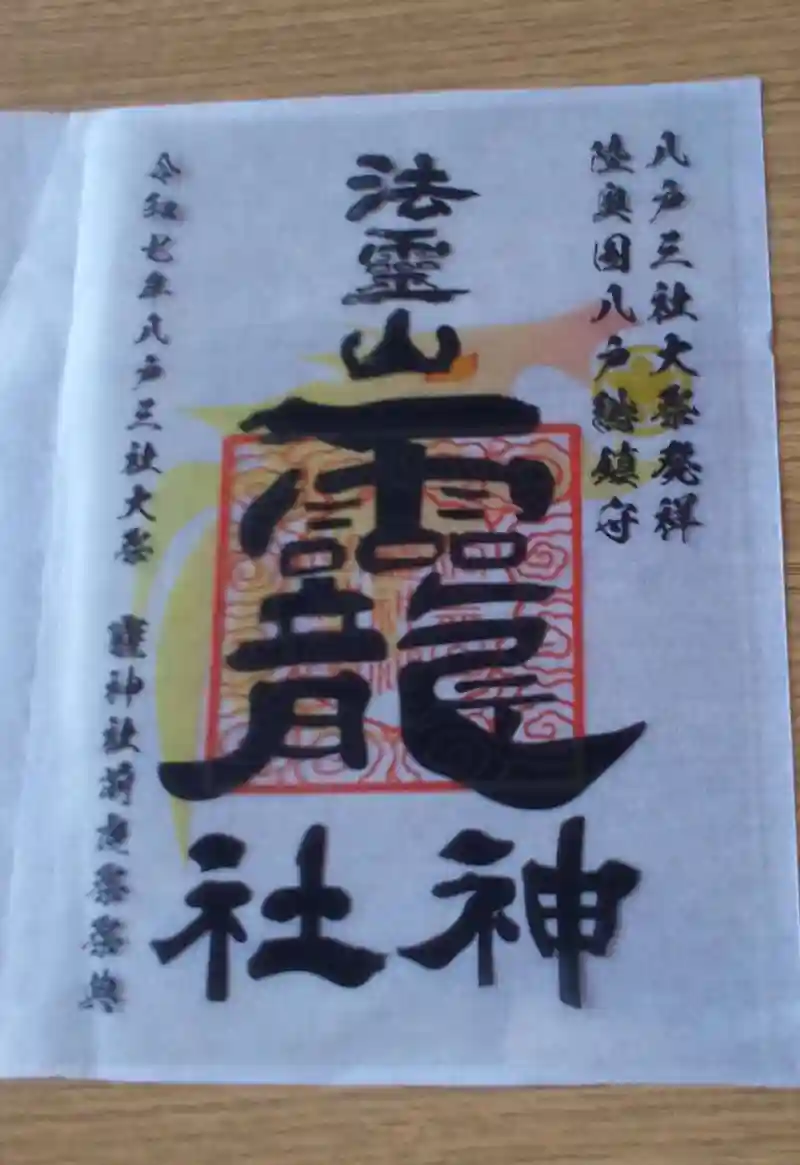 八戸三社大祭発祥
陸奥国八戸総鎮守
法靈山
龗
神社
令和七年八戸三社大祭 龗神社前夜祭祭典